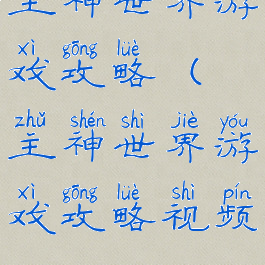 主神世界游
xì gōng lüè
戏攻略（
zhǔ shén shì jiè yóu
主神世界游
xì gōng lüè shì pín
戏攻略视频